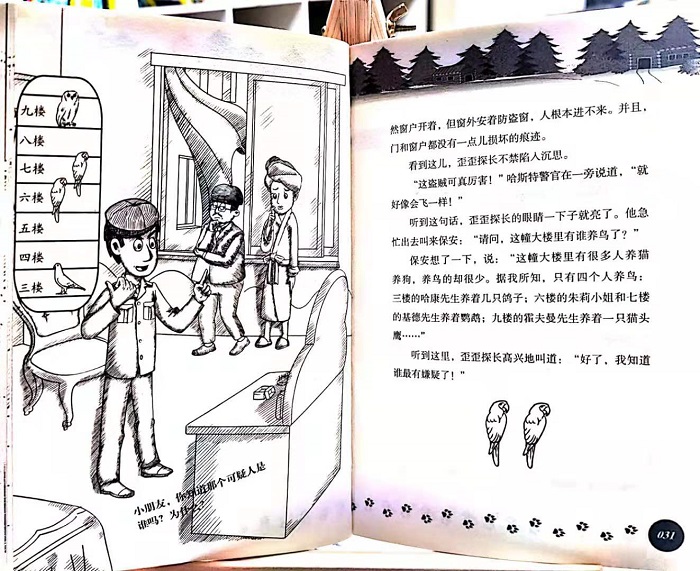 九楼
八楼
七楼
六楼
五楼
四楼
三楼
小朋友，你知道那个可疑人是
谁吗？为什么？
然窗户开着，但窗外安着防盗窗，人根本进不来。并且，
门和窗户都没有一点儿损坏的痕迹。
看到这儿，歪歪探长不禁陷入沉思。
“这盗贼可真厉害！”哈斯特警官在一旁说道，“就
好像会飞一样！”
听到这句话，歪歪探长的眼睛一下子就亮了。他急
忙出去叫来保安：“请问，这幢大楼里有谁养鸟了？”
保安想了一下，说：“这幢大楼里有很多人养猫
养狗，养鸟的却很少。据我所知，只有四个人养鸟：
三楼的哈康先生养着几只鸽子；六楼的朱莉小姐和七楼
的基德先生养着鹦鹉；九楼的霍夫曼先生养着一只猫头
鹰……”
听到这里，歪歪探长高兴地叫道：“好了，我知道
谁最有嫌疑了！”
031